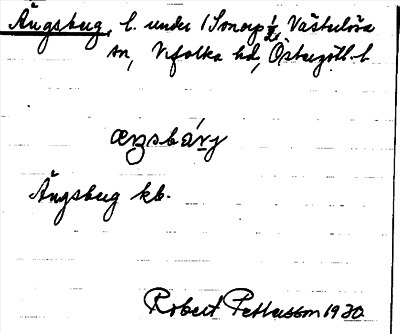 Ängsberg, l. under 1 Smorp 1/2, Västerlösa
sn, Vifolka hd, Östergötl. l
æŋsbärj
Ängsberg kb.
Robert Pettersson 1930